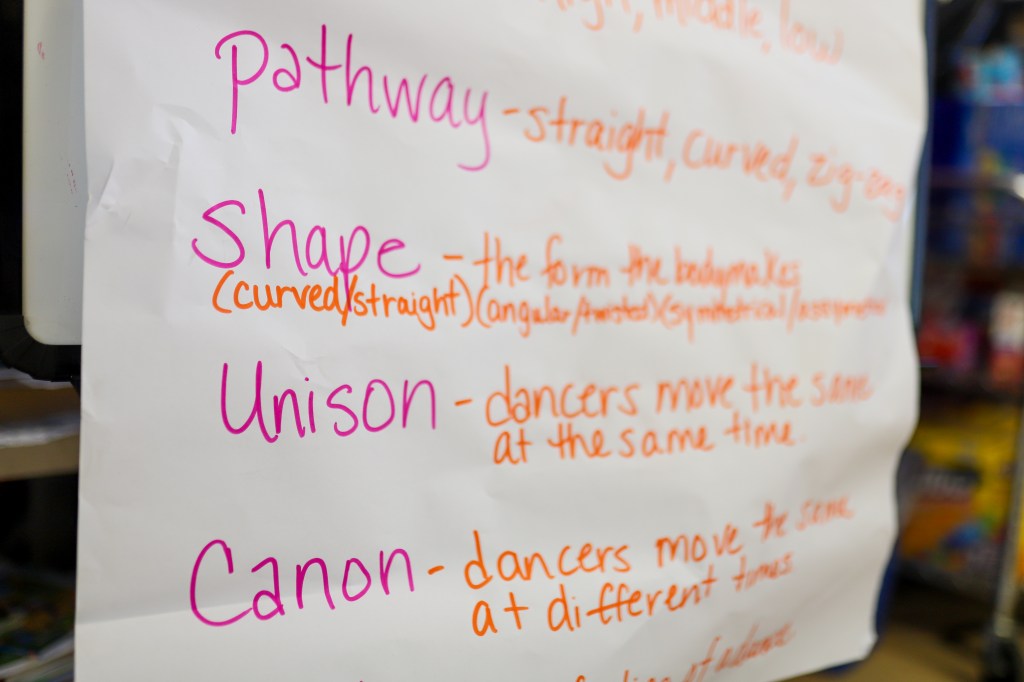 high, middle, low
Pathway - straight, curved, zig-zag
Shape - the form the body makes
(curved/straight)(angular/twisted)(symmetrical/asymmetrical
Unison - dancers move the same
at the same time.
Canon - dancers move the same
at different times
of a dance